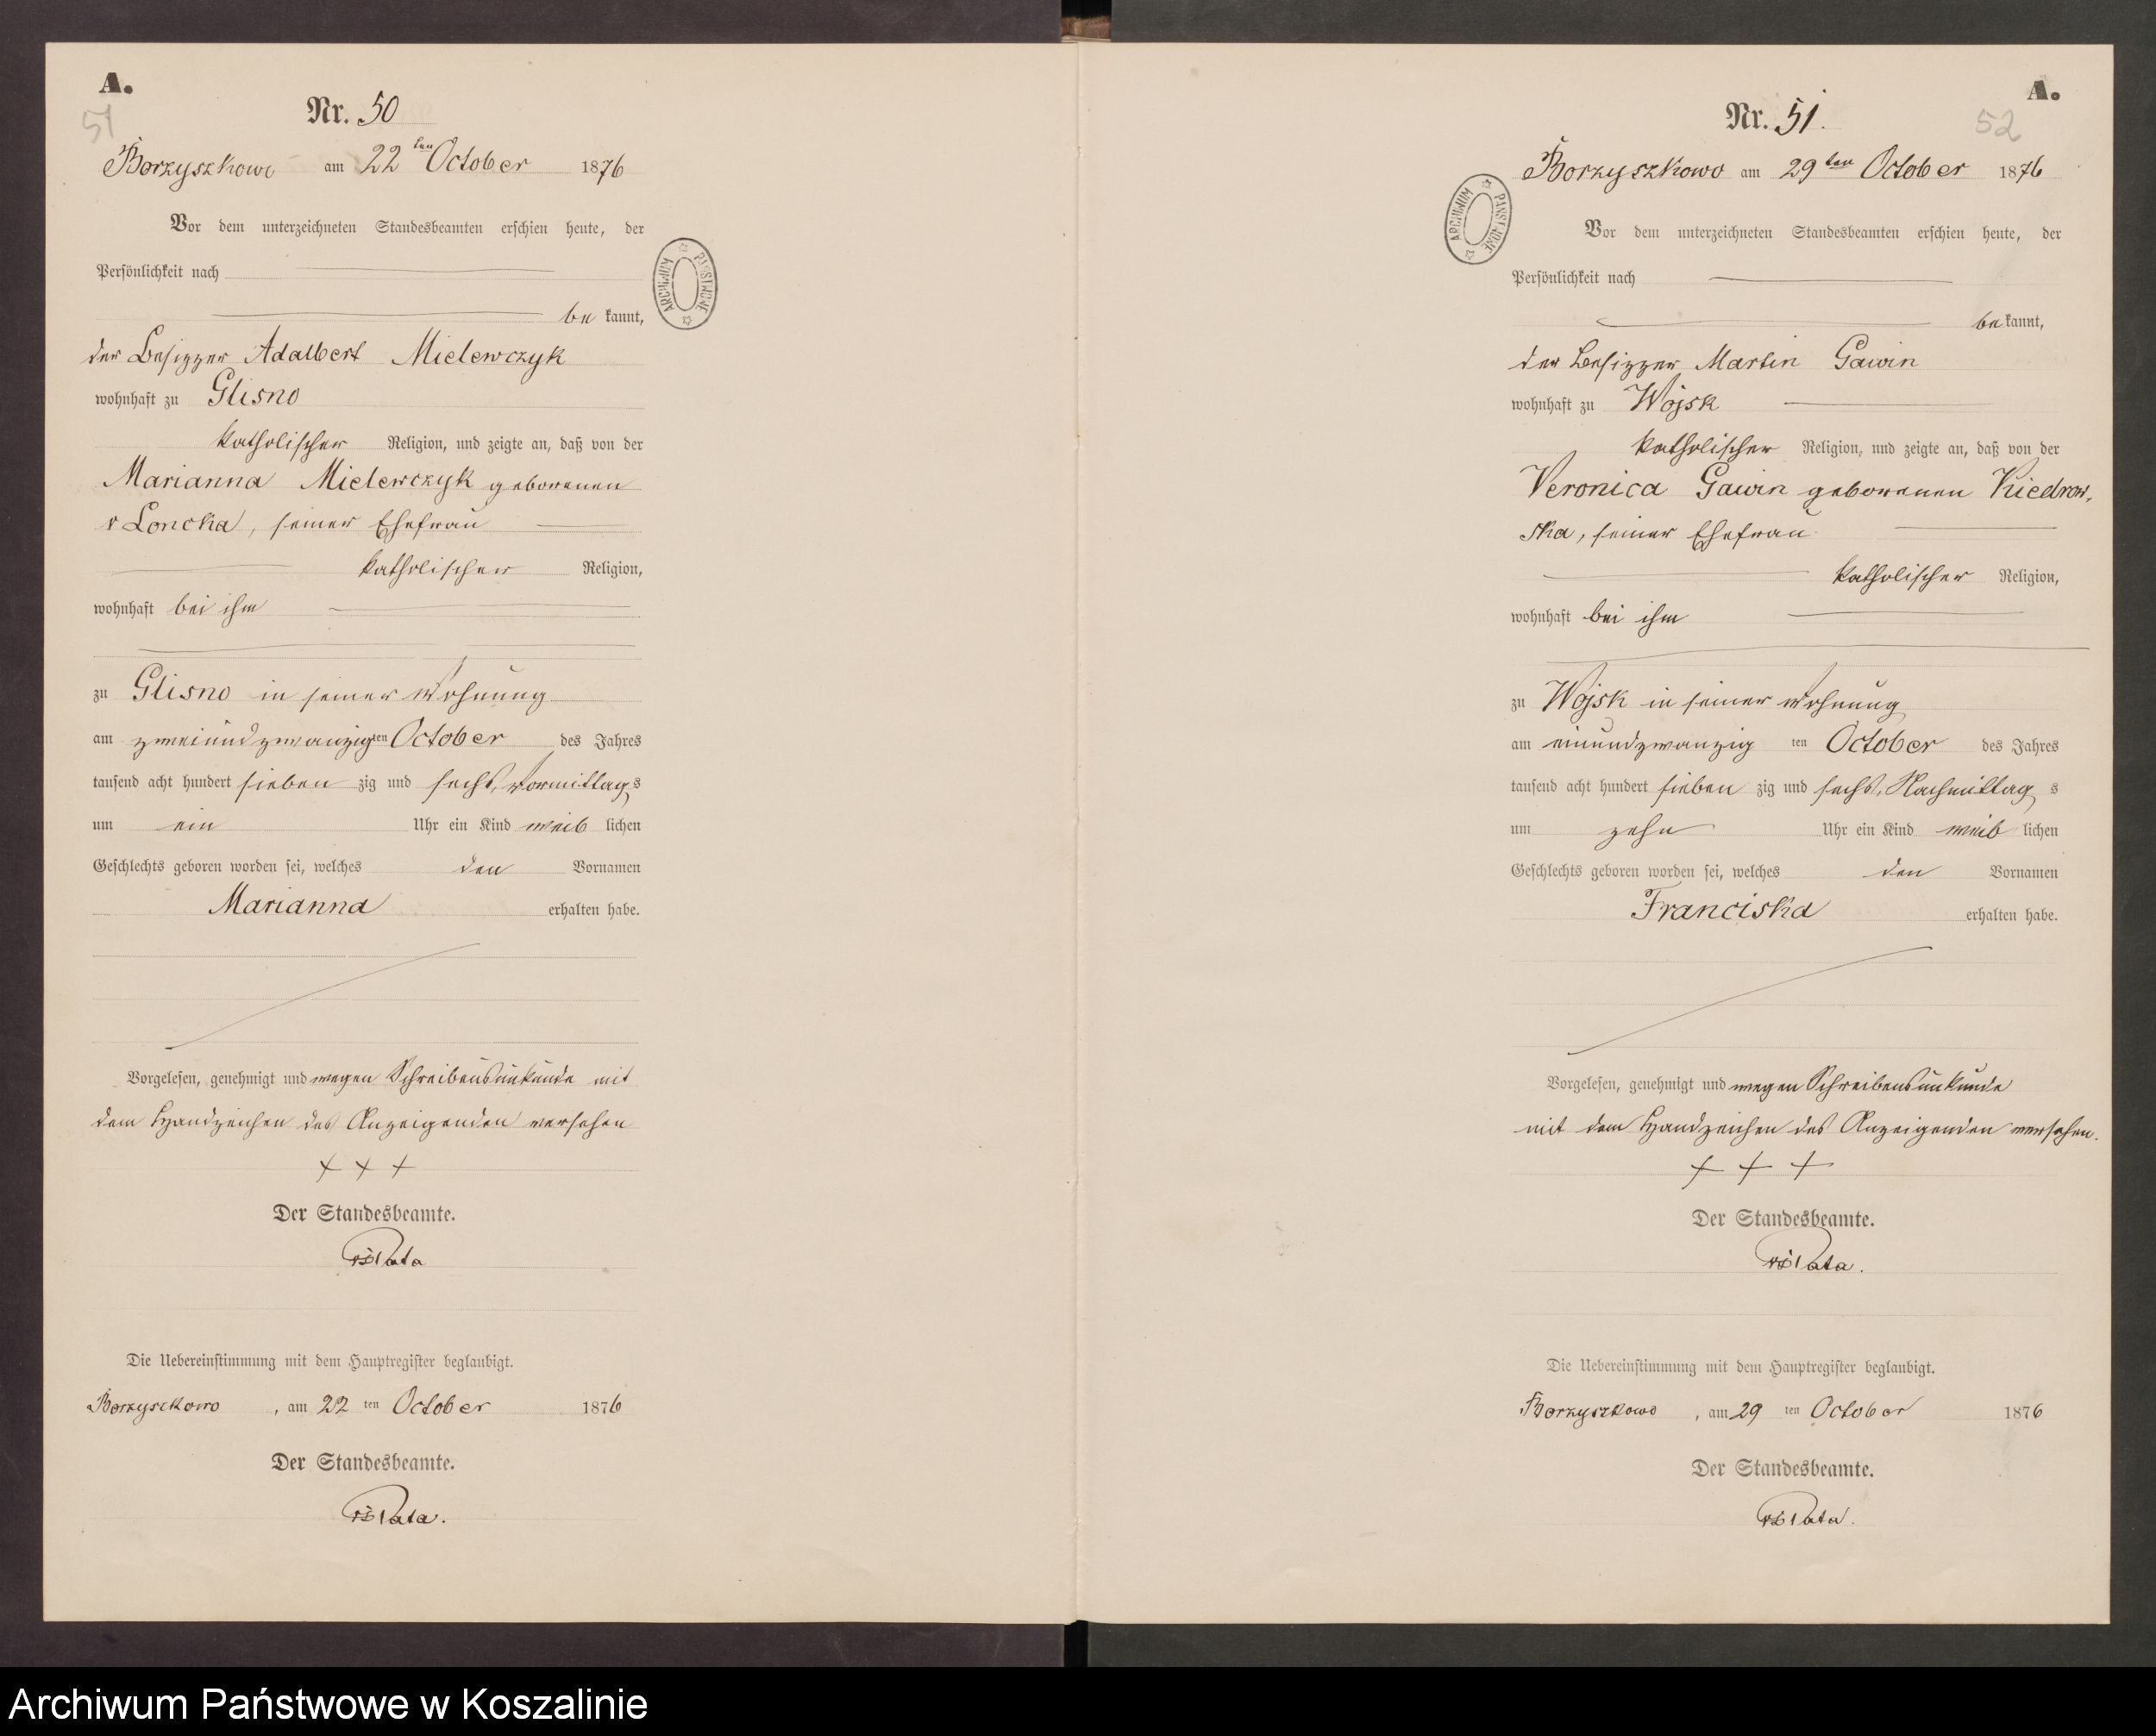 A.
51
Nr. 50
Borzyszkowo am 22ten October 1876
Vor dem unterzeichneten Standesbeamten erschien heute, der
Persönlichkeit nach
be kannt,
der Besizzer Adalbert Mielewczyk
wohnhaft zu Glisno
katholischer Religion, und zeigte an, daß von der
Marianna Mielewczyk geborenen
v Loncka, seiner Ehefrau
katholischer Religion,
wohnhaft bei ihm
zu Glisno in seiner Wohnung
am zweiundzwanzig ten October des Jahres
tausend acht hundert sieben zig und sechs, Vormittag s
um ein Uhr ein Kind weib lichen
Geschlechts geboren worden sei, welches den Vornamen
Marianna erhalten habe.
Vorgelesen, genehmigt und wegen Schreibensunkunde mit
dem Handzeichen des Anzeigenden versehen
+ + +
Der Standesbeamte.
Die Uebereinstimmung mit dem Hauptregister beglaubigt.
Borzyszkowo, am 22 ten October 1876
Der Standesbeamte.
ARCHIWUM PAŃSTWOWE
A.
52
Nr. 51.
Borzyszkowo am 29ten October 1876
Vor dem unterzeichneten Standesbeamten erschien heute, der
Persönlichkeit nach
be kannt,
der Besizzer Martin Gawin
wohnhaft zu Wojsk
katholischer Religion, und zeigte an, daß von der
Veronica Gawin geborenen Kiedrow-
ska, seiner Ehefrau
katholischer Religion,
wohnhaft bei ihm
zu Wojsk in seiner Wohnung
am einundzwanzig ten October des Jahres
tausend acht hundert sieben zig und sechs, Nachmittag s
um zehn Uhr ein Kind weib lichen
Geschlechts geboren worden sei, welches den Vornamen
Franciska erhalten habe.
Vorgelesen, genehmigt und wegen Schreibensunkunde
mit dem Handzeichen des Anzeigenden versehen.
+ + +
Der Standesbeamte.
Die Uebereinstimmung mit dem Hauptregister beglaubigt.
Borzyszkowo, am 29 ten October 1876
Der Standesbeamte.
ARCHIWUM PAŃSTWOWE
Archiwum Państwowe w Koszalinie